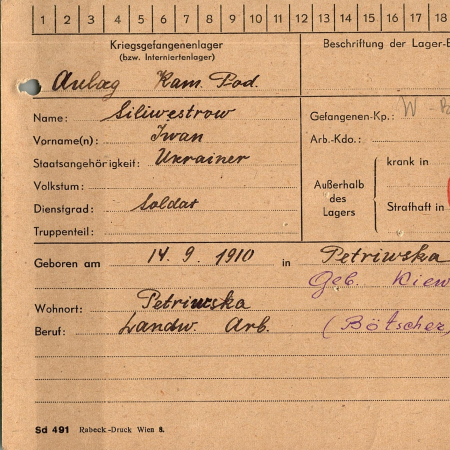 1 2 3 4 5 6 7 8 9 10 11 12 13 14 15 16 17 18
Kriegsgefangenenlager
(bzw. Interniertenlager)
Beschriftung der Lager-E
Aulag Kam. Pod.
Name: Siliwestrow
Gefangenen-Kp.: W
Vorname(n): Iwan
Arb.-Kdo.:
Staatsangehörigkeit: Ukrainer
krank in
Volkstum:
Außerhalb
des
Lagers
Dienstgrad: Soldat
Strafhaft in
Truppenteil:
Geboren am 14. 9. 1910 in Petriwska
Geb. Kiew
Wohnort: Petriwska
Beruf: Landw. Arb. (Bötscher)
Sd 491 Rabeck-Druck Wien 8.